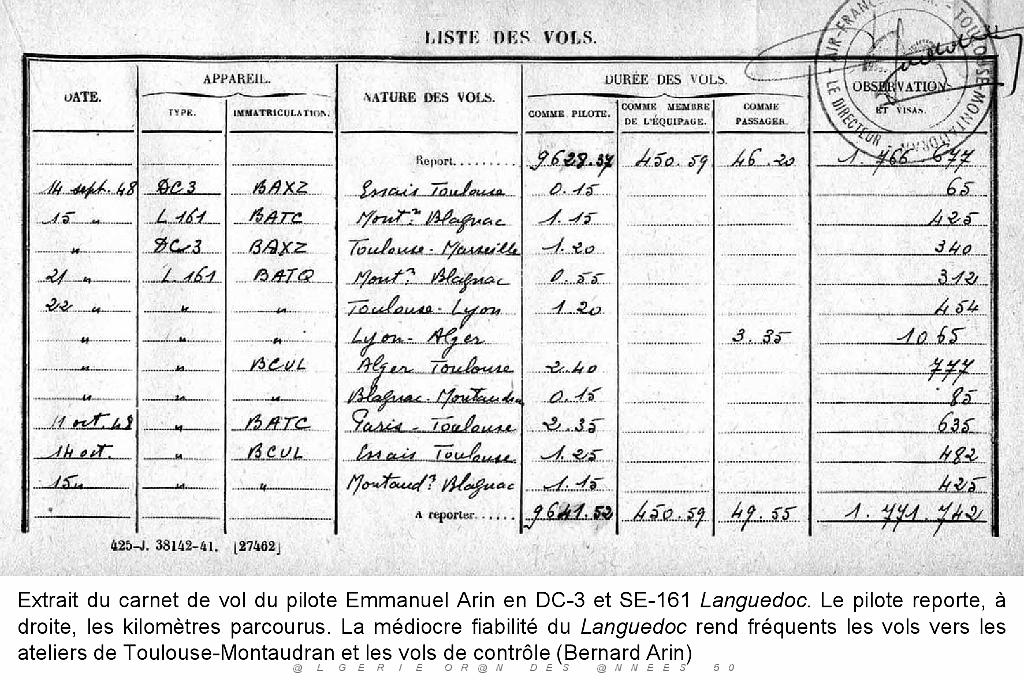 LISTE DES VOLS.
AIR-FRANCE TOULOUSE-MONTAUDRAN LE DIRECTEUR
DATE. APPAREIL. NATURE DES VOLS. DURÉE DES VOLS. OBSERVATION
TYPE. IMMATRICULATION. COMME PILOTE. COMME MEMBRE DE L'ÉQUIPAGE. COMME PASSAGER. ET VISAS.
Report........ 9628.37 450.59 46.20 1.766 677
14 sept. 48 DC3 BAXZ Essais Toulouse 0.15 65
15 " L.161 BATC Mont.n Blagnac 1.15 425
" DC-3 BAXZ Toulouse-Marseille 1.20 340
21 " L.161 BATQ Mont.n Blagnac 0.55 312
22 " " " Toulouse-Lyon 1.20 454
" " " Lyon-Alger 3.35 1065
" " BCUL Alger Toulouse 2.40 777
" " " Blagnac-Montaudran 0.15 85
11 oct. 48 " BATC Paris-Toulouse 2.35 635
14 oct. " BCUL Essais Toulouse 1.25 482
15 " " " Montaud.n Blagnac 1.15 425
A reporter...... 9641.52 450.59 49.55 1.771.742
425-J. 38142-41. [27462]
Extrait du carnet de vol du pilote Emmanuel Arin en DC-3 et SE-161 Languedoc. Le pilote reporte, à
droite, les kilomètres parcourus. La médiocre fiabilité du Languedoc rend fréquents les vols vers les
ateliers de Toulouse-Montaudran et les vols de contrôle (Bernard Arin)
@LGERIE OR@N DES @NNEES 50